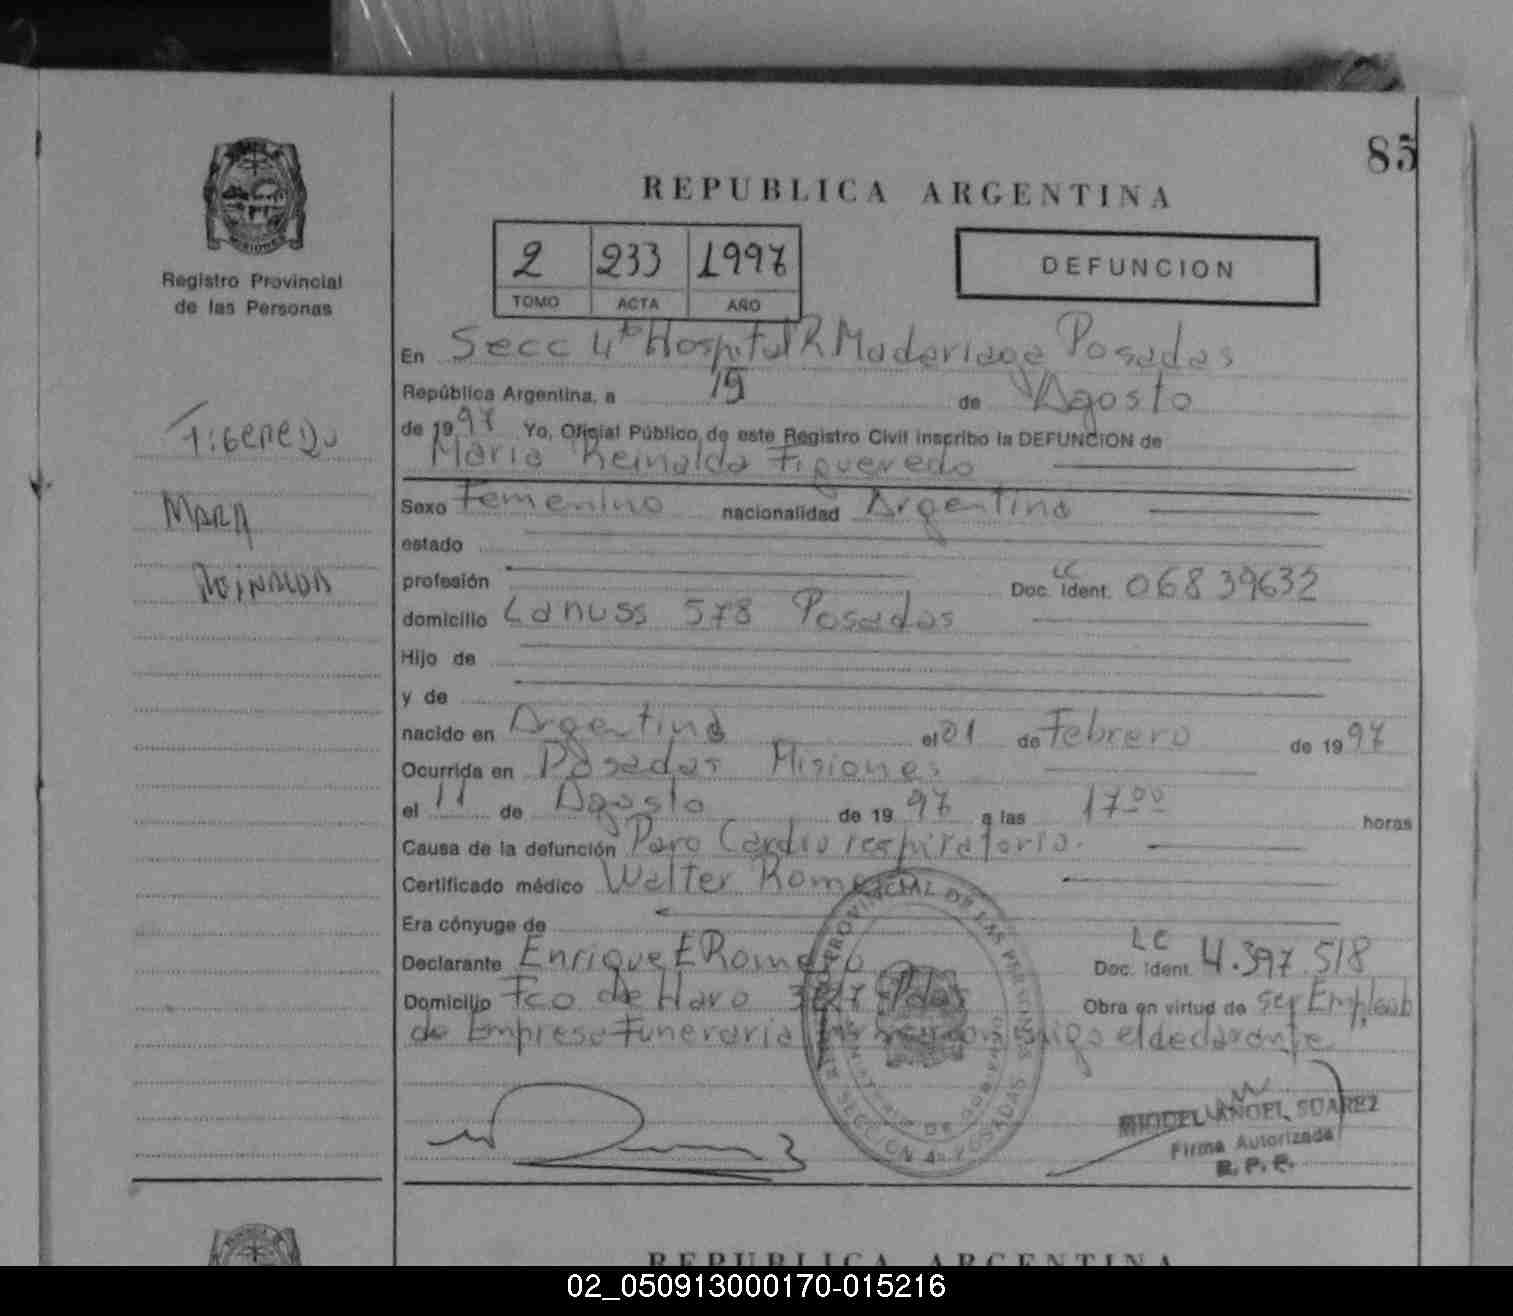 85
REPUBLICA ARGENTINA
2 233 1997
TOMO ACTA AÑO
DEFUNCION
Registro Provincial
de las Personas
En Secc 4ta Hospital R Madariaga Posadas
República Argentina, a 19 de Agosto
de 1997 Yo, Oficial Público de este Registro Civil inscribo la DEFUNCION de
Maria Reinalda Figueredo
Figeredo
Mara
Reinalda
Sexo Femenino nacionalidad Argentina
estado
profesión Doc. Ident. LC 06839632
domicilio Lanuss 578 Posadas
Hijo de
y de
nacido en Argentina el 01 de Febrero de 1997
Ocurrida en Posadas Misiones
el 11 de Agosto de 1997 a las 17 00 horas
Causa de la defunción Paro Cardio respiratorio.
Certificado médico Walter Rom
Era cónyuge de
Declarante Enrique E Romero Doc. Ident. LE 4.397.518
Domicilio Fco de Haro Pdas Obra en virtud de ser Empleado
de Empresa Funeraria el declarante
PROVINCIAL DE LAS PERSONAS
SECCION 4a POSADAS
MIGUEL ANGEL SUAREZ
Firma Autorizada
R. P. P.
REPUBLICA ARGENTINA
02_050913000170-015216